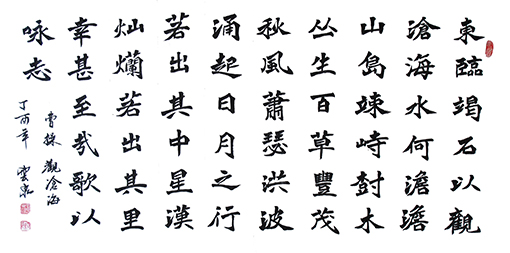 東臨竭石以觀
滄海水何澹澹
山島竦峙尌木
丛生百草豐茂
秋風蕭瑟洪波
涌起日月之行
若出其中星漢
灿爛若出其里
幸甚至哉歌以
咏志
曹操 觀滄海
丁酉年 雲泉